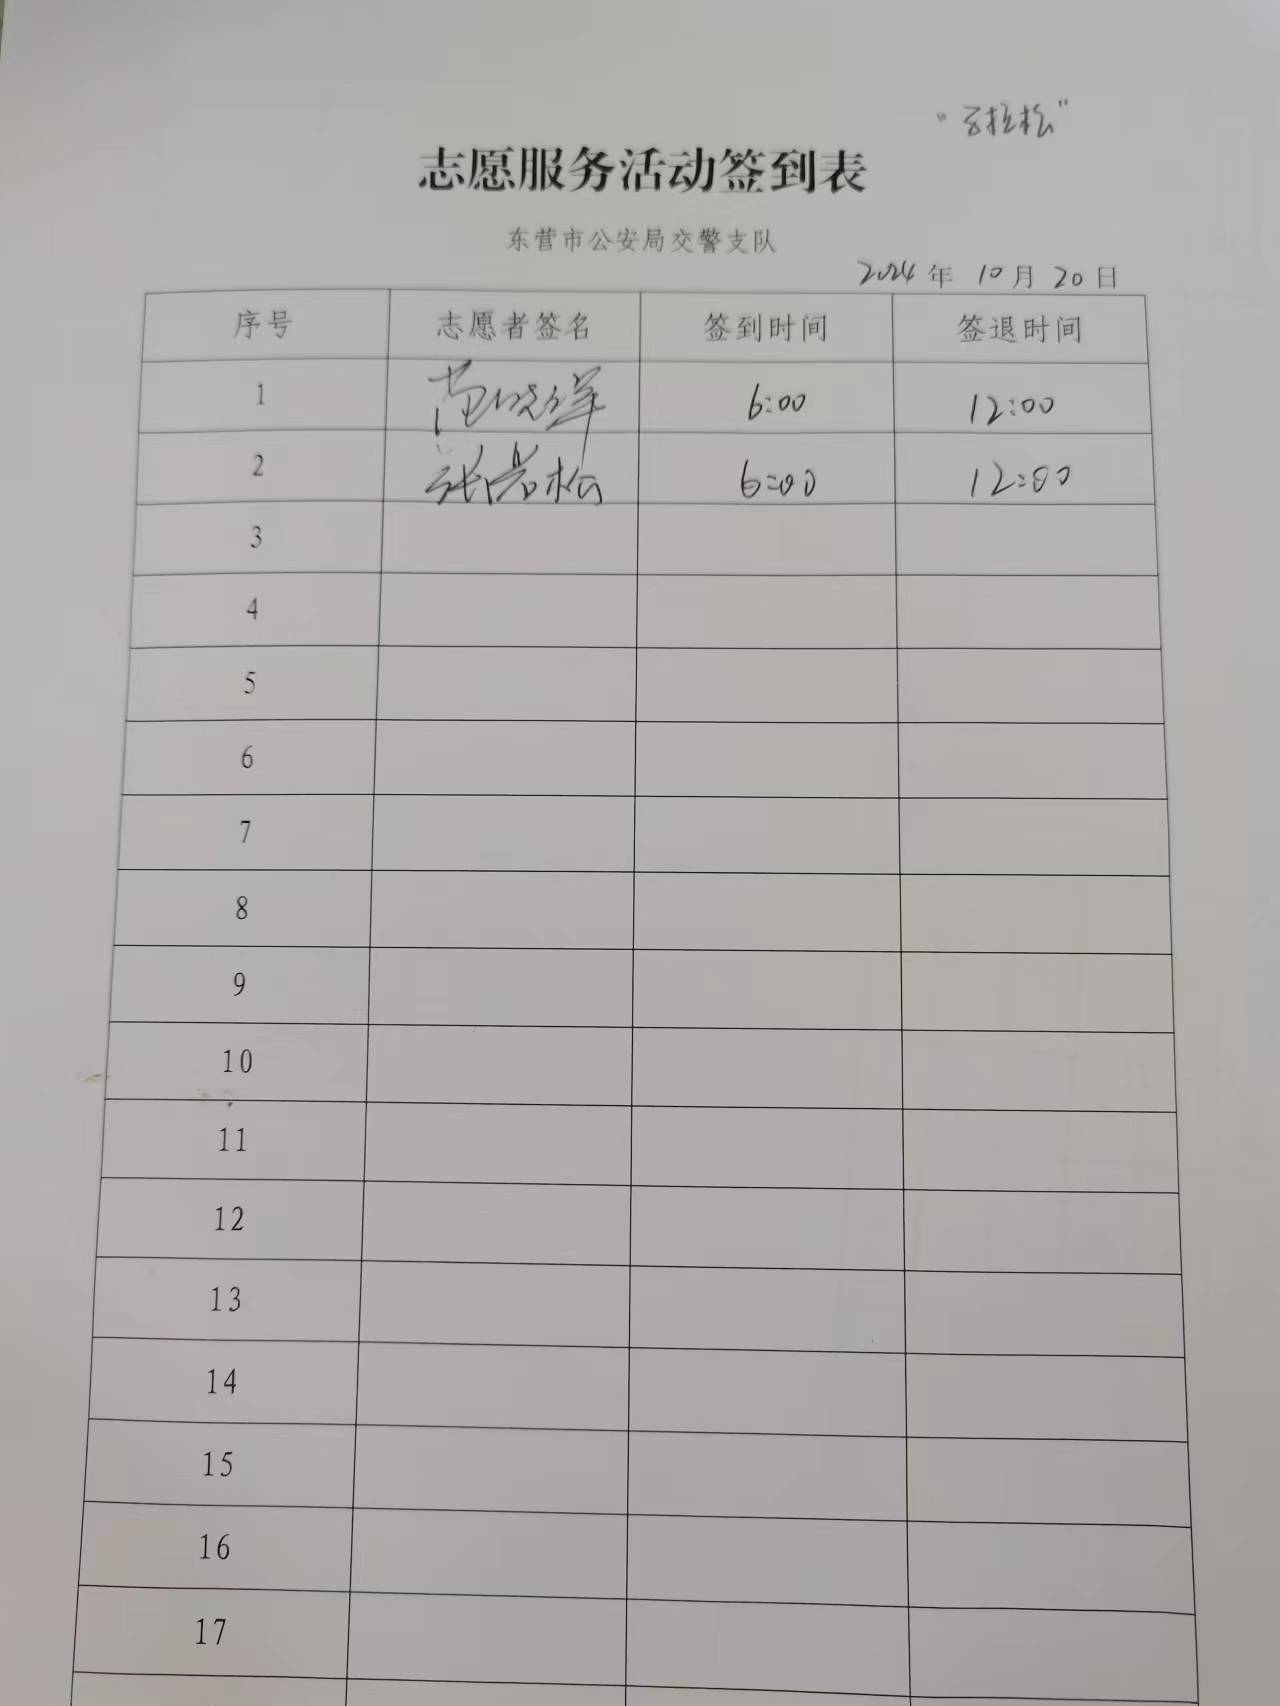 “马拉松”
志愿服务活动签到表
东营市公安局交警支队
2024年 10月 20日
序号 志愿者签名 签到时间 签退时间
1 6:00 12:00
2 张岩松 6:00 12:00
3
4
5
6
7
8
9
10
11
12
13
14
15
16
17